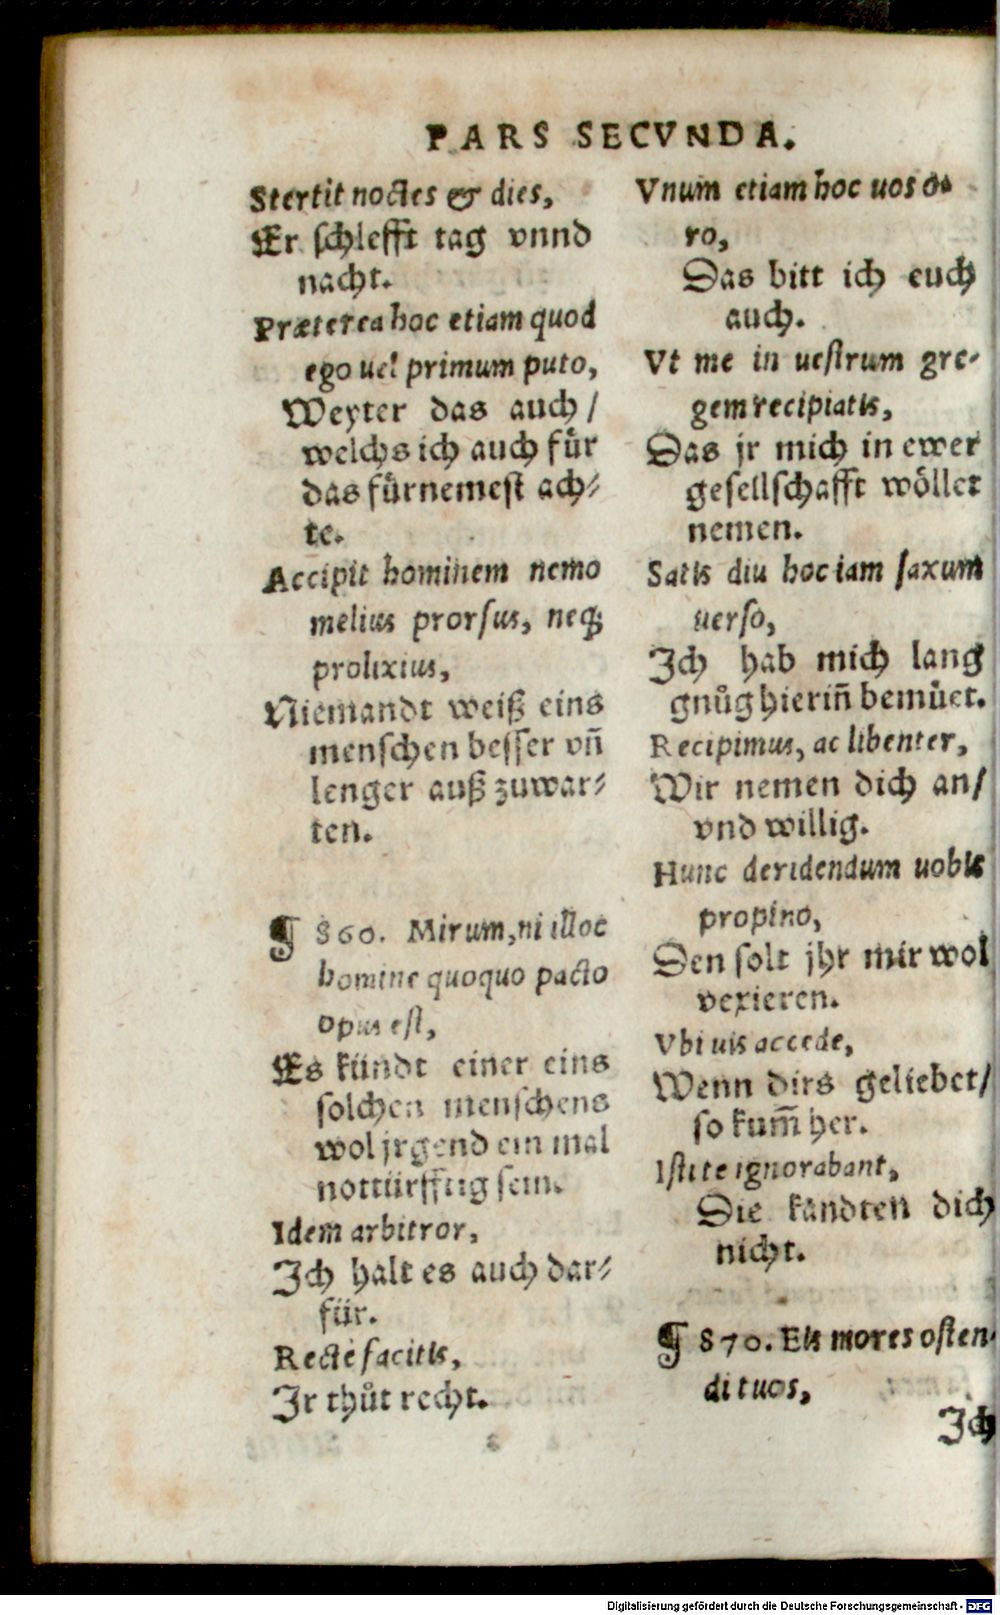 PARS SECVNDA.
Stertit noctes & dies,
Er schlefft tag vnnd
nacht.
Præterea hoc etiam quod
ego uel primum puto,
Weyter das auch /
welchs ich auch für
das fürnemest ach⸗
te.
Accipit hominem nemo
melius prorsus, neq;
prolixius,
Niemandt weiß eins
menschen besser vñ
lenger auß zuwar⸗
ten.
¶ 860. Mirum, ni illoc
homine quoquo pacto
opus est,
Es kündt einer eins
solchen menschens
wol jrgend ein mal
nottürfftig sein.
Idem arbitror,
Ich halt es auch dar⸗
für.
Rectè facitis,
Ir thůt recht.
Vnum etiam hoc uos o⸗
ro,
Das bitt ich euch
auch.
Vt me in uestrum gre⸗
gem recipiatis,
Das jr mich in ewer
gesellschafft wöllet
nemen.
Satis diu hoc iam saxum
uerso,
Ich hab mich lang
gnůg hieriñ bemüet.
Recipimus, ac libenter,
Wir nemen dich an/
vnd willig.
Hunc deridendum uobis
propino,
Den solt jhr mir wol
vexieren.
Vbi uis accede,
Wenn dirs geliebet/
so kum̃ her.
Isti te ignorabant,
Die kandten dich
nicht.
¶ 870. Eis mores osten⸗
di tuos,
Ich
Digitalisierung gefördert durch die Deutsche Forschungsgemeinschaft - DFG